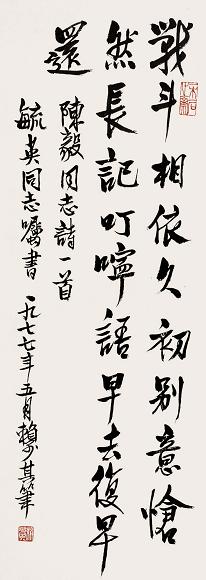 戰斗相依久初别意愴
然長記叮嚀語早去復早
還
陳毅同志詩一首
毓英同志囑書 一九七七年五月賴少其筆